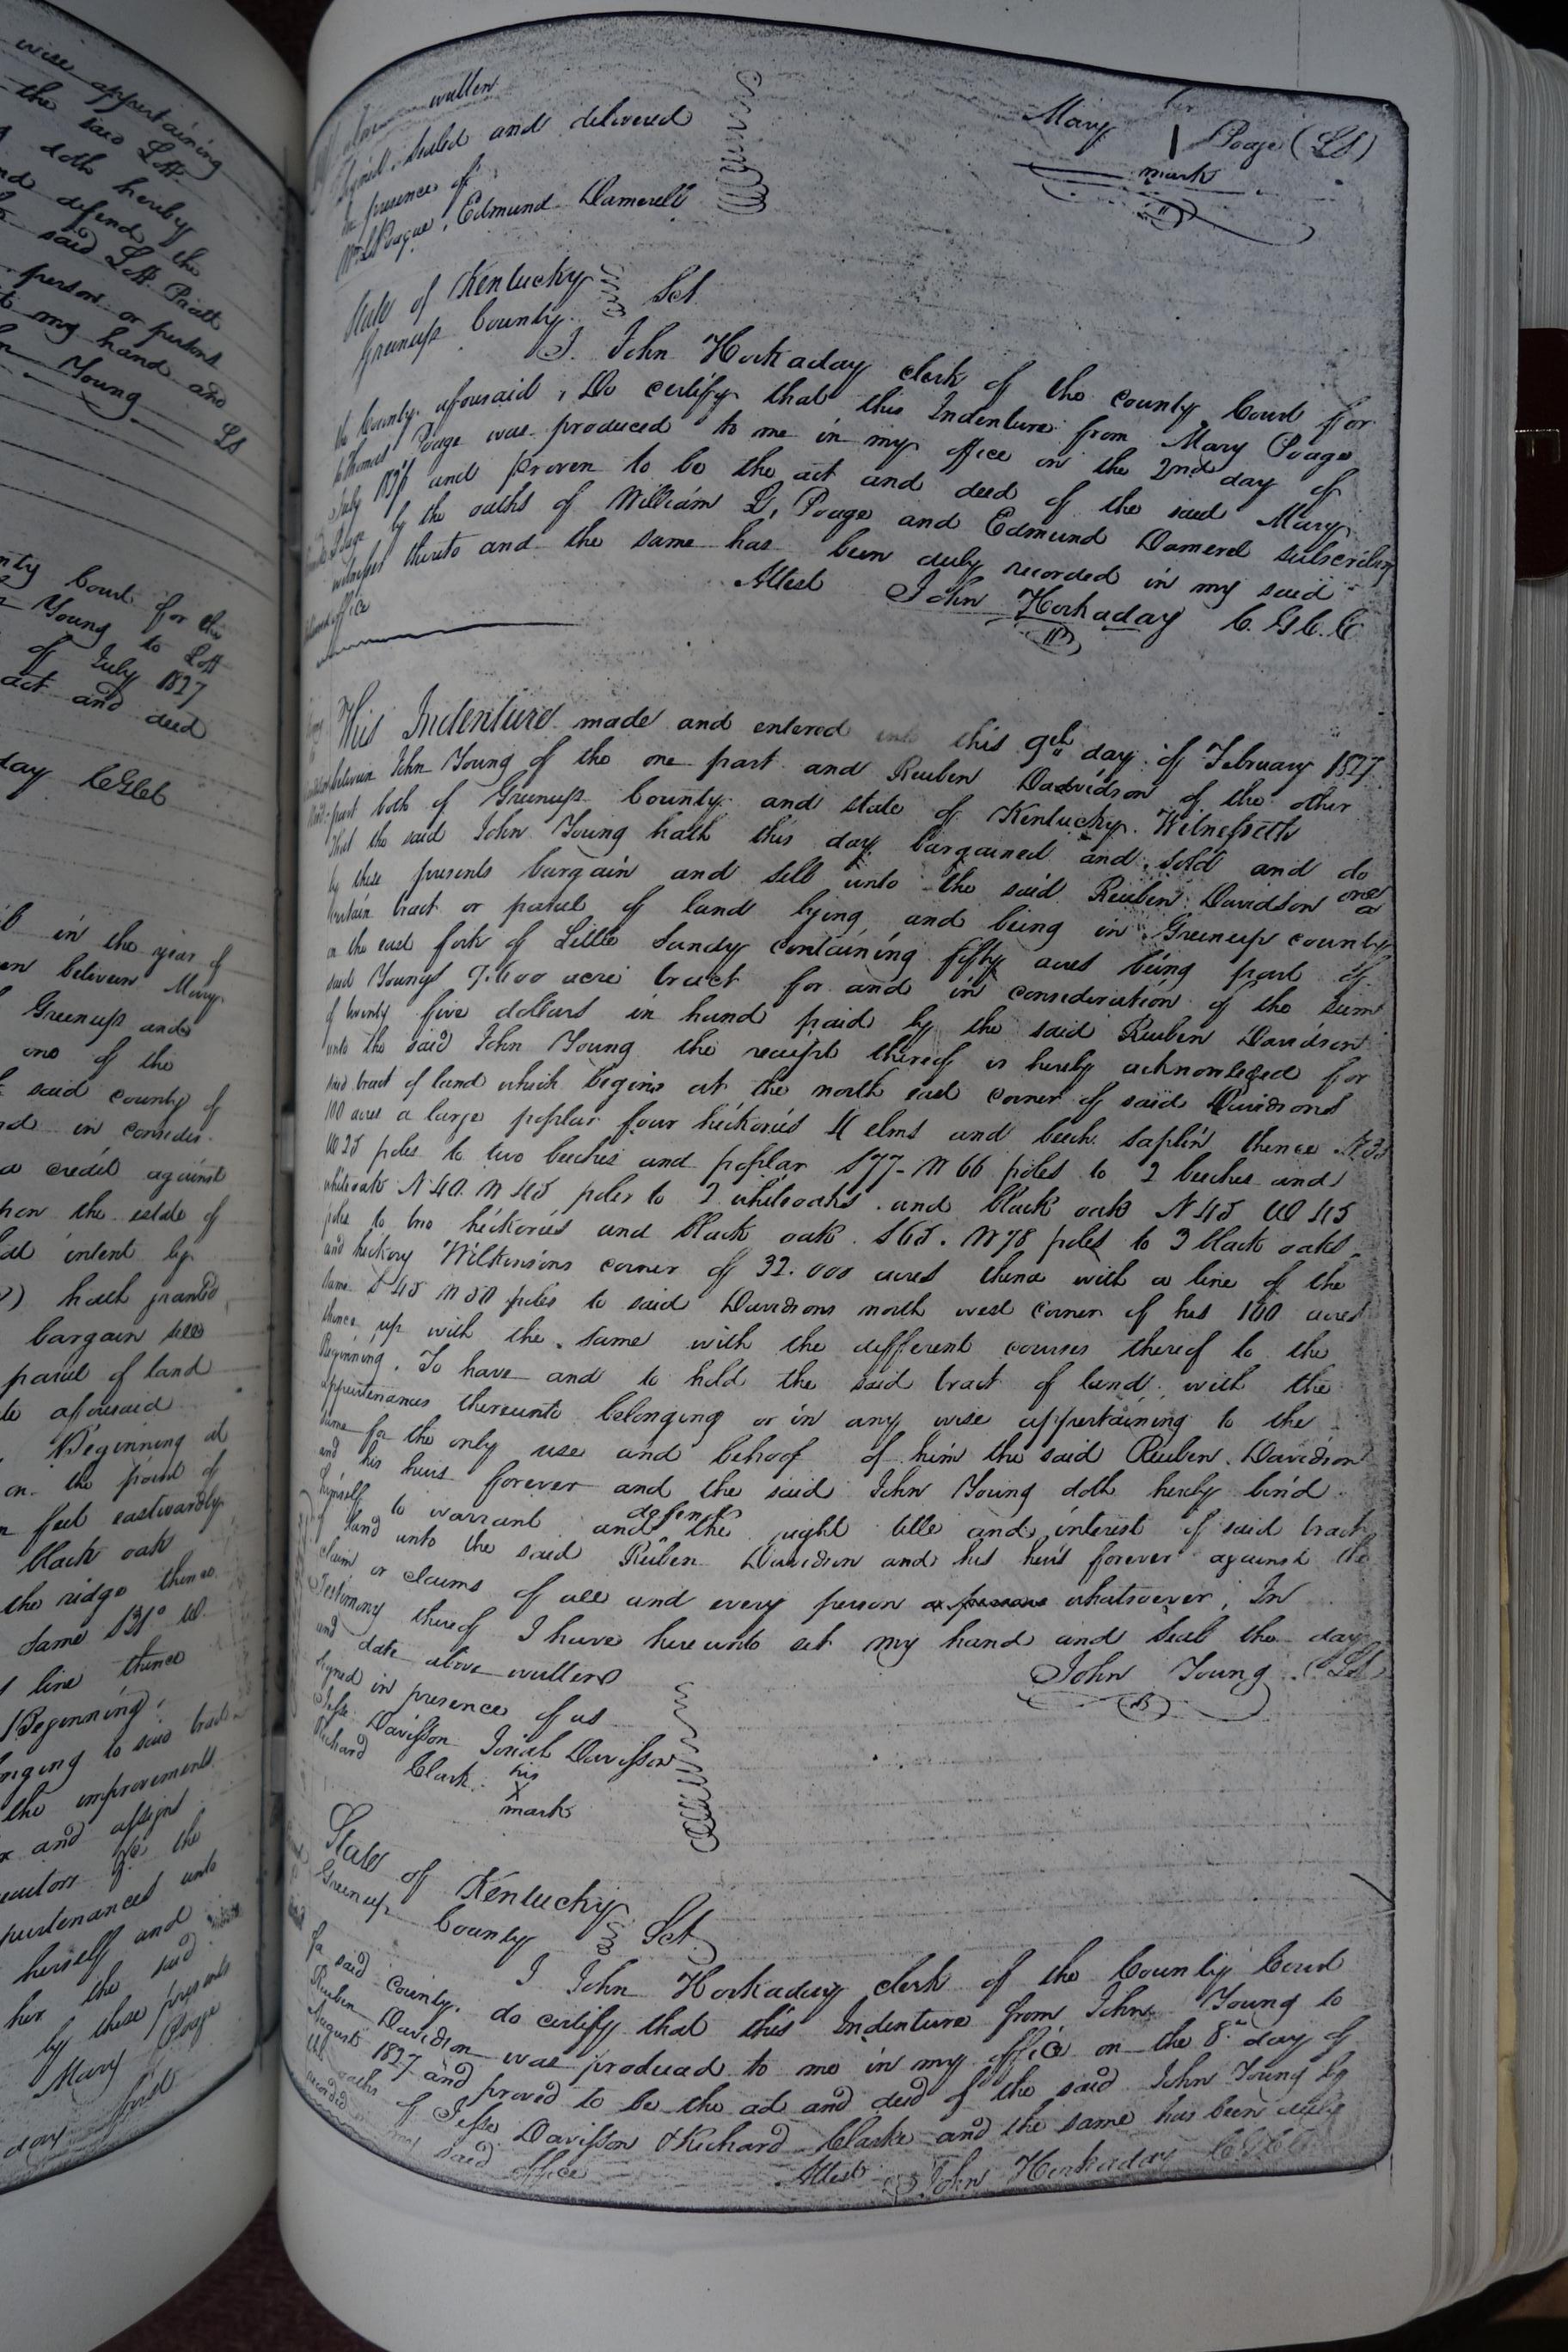 wise appertaining
the said Lott
doth hereby
nd defend the
said Lott Pratt
person or persons
my hand and
Young LS
nty Court for the
Young to Lott
of July 1827
act and deed
day CGCC
in the year of
en between Mary
Greenup and
one of the
said county of
nd in consider-
a credit against
pon the estate of
intent by
hath granted
bargain sell
parcel of land
te aforesaid
Beginning at
on the point of
n feet eastwardly
black oak
the ridge thence
same S31° W.
line thence
Beginning
nging to said tract
the improvements
and assigns
ecutors &c the
purtenances unto
herself and
her the said
by these presents
Mary Poage
day first
above written
Signd. sealed and delivered
In presence of
Wm L Poague, Edmund Damerell
her
Mary | Poage (LS)
mark
State of Kentucky
Greenup County Sct
I John Hockaday clerk of the county Court for
the County aforesaid, Do certify that this Indenture from Mary Poage
to Thomas Poage was produced to me in my office on the 2nd day of
July 1827 and proven to be the act and deed of the said Mary
Poage by the oaths of William L. Poage and Edmund Damerel subscribing
witnesses thereto and the same has been duly recorded in my said
office
Attest John Hockaday C.G.C.C
This Indenture made and entered into this 9th day of February 1827
between John Young of the one part and Reuben Davidson of the other
part both of Greenup County and state of Kentucky. Witnesseth
That the said John Young hath this day bargained and sold and do
by these presents bargain and sell unto the said Reuben Davidson one
certain tract or parcel of land lying and being in Greenup county
on the east fork of Little Sandy containing fifty acres being part of
said Youngs 9.400 acre tract for and in consideration of the sum
of twenty five dollars in hand paid by the said Reuben Davidson
unto the said John Young the receipt thereof is hereby acknowleged for
said tract of land which begins at the north east corner of said Davidsons
100 acres a large poplar four hickories 4 elms and beech saplin thence
W 25 poles to two beeches and poplar S77 W 66 poles to 2 beeches and
whiteoak N 40. W 45 poles to 2 whiteoaks and black oak N 45 W 45
poles to two hickories and black oak S65. W 78 poles to 3 black oaks
and hickory Wilkinsons corner of 32.000 acres thence with a line of the
same S 45 W 50 poles to said Davidsons north west corner of his 100 acres
thence up with the same with the different courses thereof to the
Beginning. To have and to hold the said tract of land with the
appurtenances thereunto belonging or in any wise appertaining to the
same for the only use and behoof of him the said Reuben Davidson
and his heirs forever and the said John Young doth hereby bind
himself to warrant and defend the right title and interest of said tract
of land unto the said Reuben Davidson and his heirs forever against the
claim or claims of all and every person or persons whatsoever; In
Testimony thereof I have hereunto set my hand and seal the day
and date above written
John Young (LS)
signed in presence of us
Jesse Davisson Josiah Davisson
Richard Clark his
X
mark
State of Kentucky
Greenup County Sct
I John Hockaday clerk of the County Court
for said county. do certify that this Indenture from John Young to
Reuben Davidson was produced to me in my office on the 8th day of
August 1827 and proved to be the act and deed of the said John Young by
the oaths of Jesse Davisson & Richard Clarke and the same has been duly
recorded in my said office
Attest John Hockaday CGCC